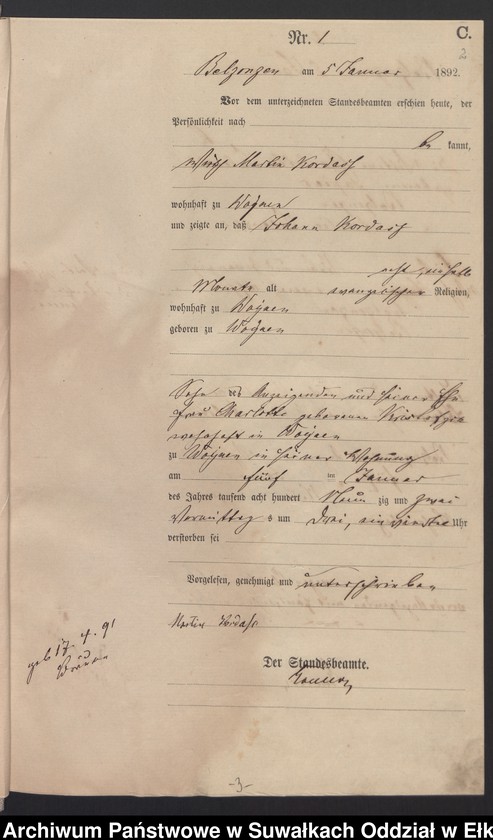 C.
2
Nr. 1
Belzonzen am 5 Januar 1892.
Vor dem unterzeichneten Standesbeamten erschien heute, der
Persönlichkeit nach
be kannt,
Wirth Martin Kordass
wohnhaft zu Woynen
und zeigte an, daß Johann Kordass
acht einhalb
Monate alt evangelischer Religion,
wohnhaft zu Woynen
geboren zu Woynen
Sohn des Anzeigenden und seiner Ehe
frau Charlotte geborenen
wohnhaft in Woynen
zu Woynen in seiner Wohnung
am fünf ten Januar
des Jahres tausend acht hundert Neun zig und zwei
Vormittag s um drei, ein viertel Uhr
verstorben sei
Vorgelesen, genehmigt und unterschrieben
Martin Kordass
geb 17. 4. 91
Woynen
Der Standesbeamte.
-3-
Archiwum Państwowe w Suwałkach Oddział w Ełk